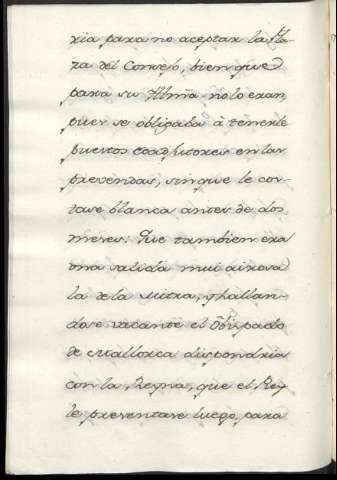 ria para no aceptar la Pla-
za del Consejo, bien que
para su Illma no lo eran,
pues se obligaba à tenerle
puestos Coadjutores en las
prevendas, sin que le cor-
tase blanca antes de dos
meses: Que tambien era
una salida mui airosa
la de la Mitra, y hallan-
dose vacante el Obispado
de Mallorca dispondria
con la Reyna, que el Rey
le presentase luego, para